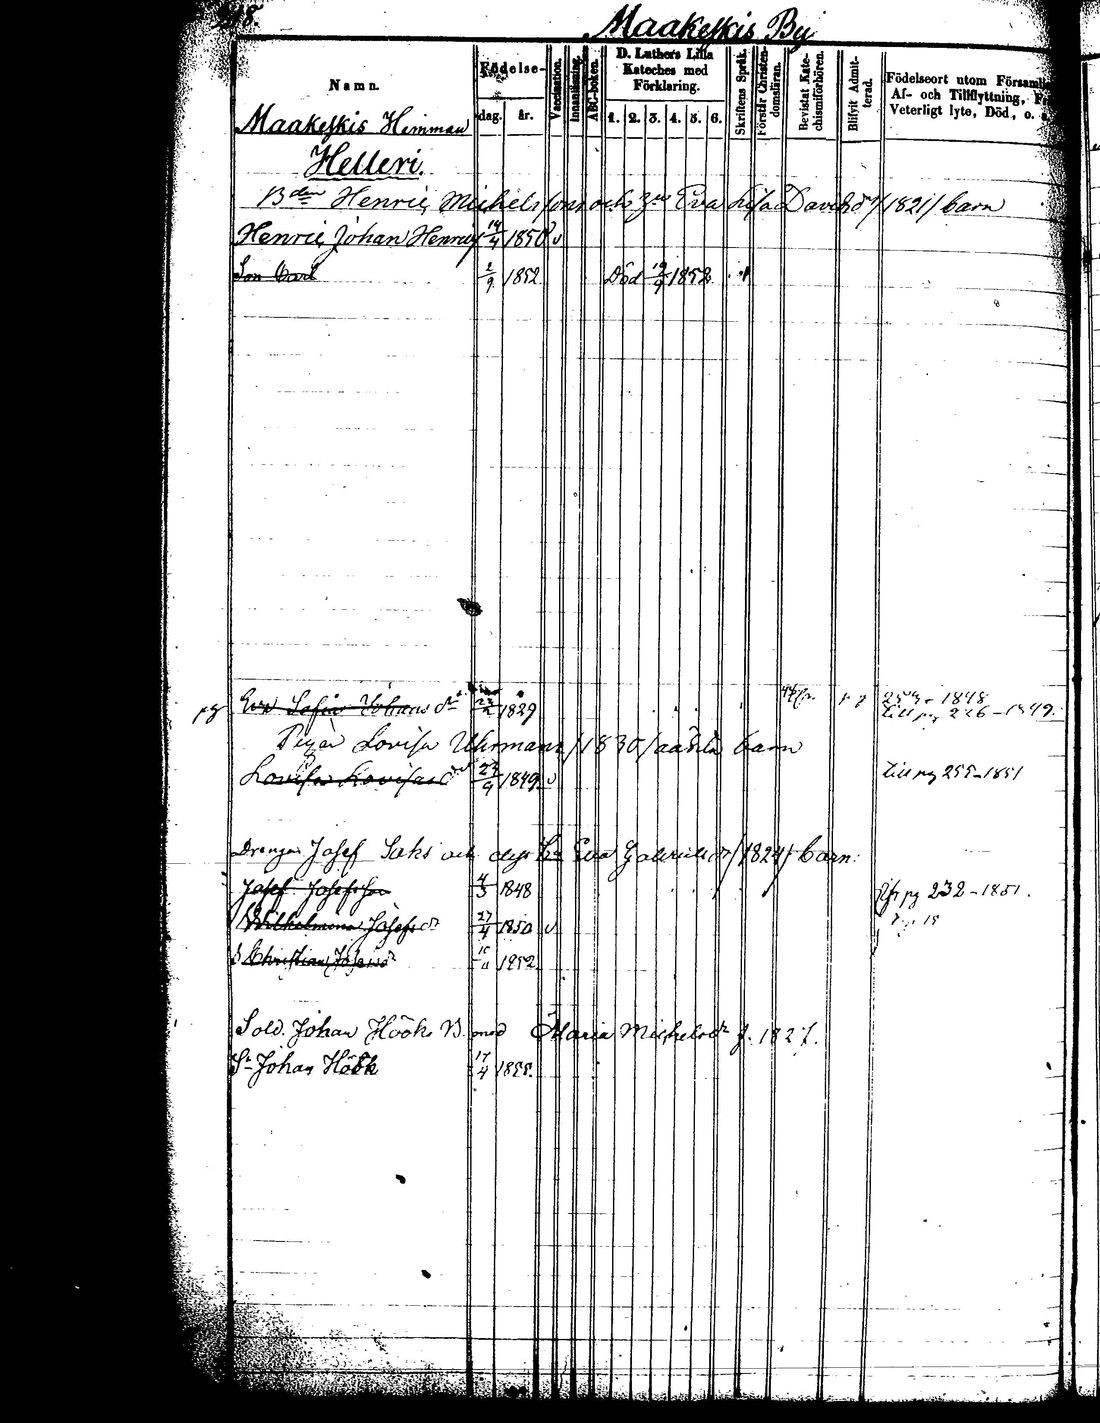 Maakeskis By
Namn.
Födelse-
dag.
år.
Vaccination.
Innanläsning.
ABC-boken.
D. Luthers Lilla
Kateches med
Förklaring.
1. 2. 3. 4. 5. 6.
Skriftens Språk.
Förstår Christen-
domsläran.
Bevistat Kate-
chismiförhören.
Blifvit Admit-
terad.
Födelseort utom Församli
Af- och Tillflyttning, Fr
Veterligt lyte, Död, o. s.
Maakeskis Hemman
Helleri.
Bden Henric Michelsson och Eva Lisa Davidsdr /1821/ barn
Henric Johan Henrics 14/4 1850 v
Son Carl 2/9 1852 Död 19/9 1852
pg Eva Sofia Johansdr 1829 1848
till pg 226-1849.
Pigan Lovisa Uhrmann /1830/ oäkta barn
Lovisa Lovisasdr 23/9 1849 v till pg 255-1851
Drengen Josef Saks och dess Eva Gabrielsdr /1824/ barn:
Josef Josefsson 4/3 1848 pg 232-1851.
Wilhelmina Josefsdr 27/4 1850 v
Christian 1852
Sold. Johan Höök B. med Maria Michelsdr f. 1827.
Sn Johan Höök 17/4 1855.